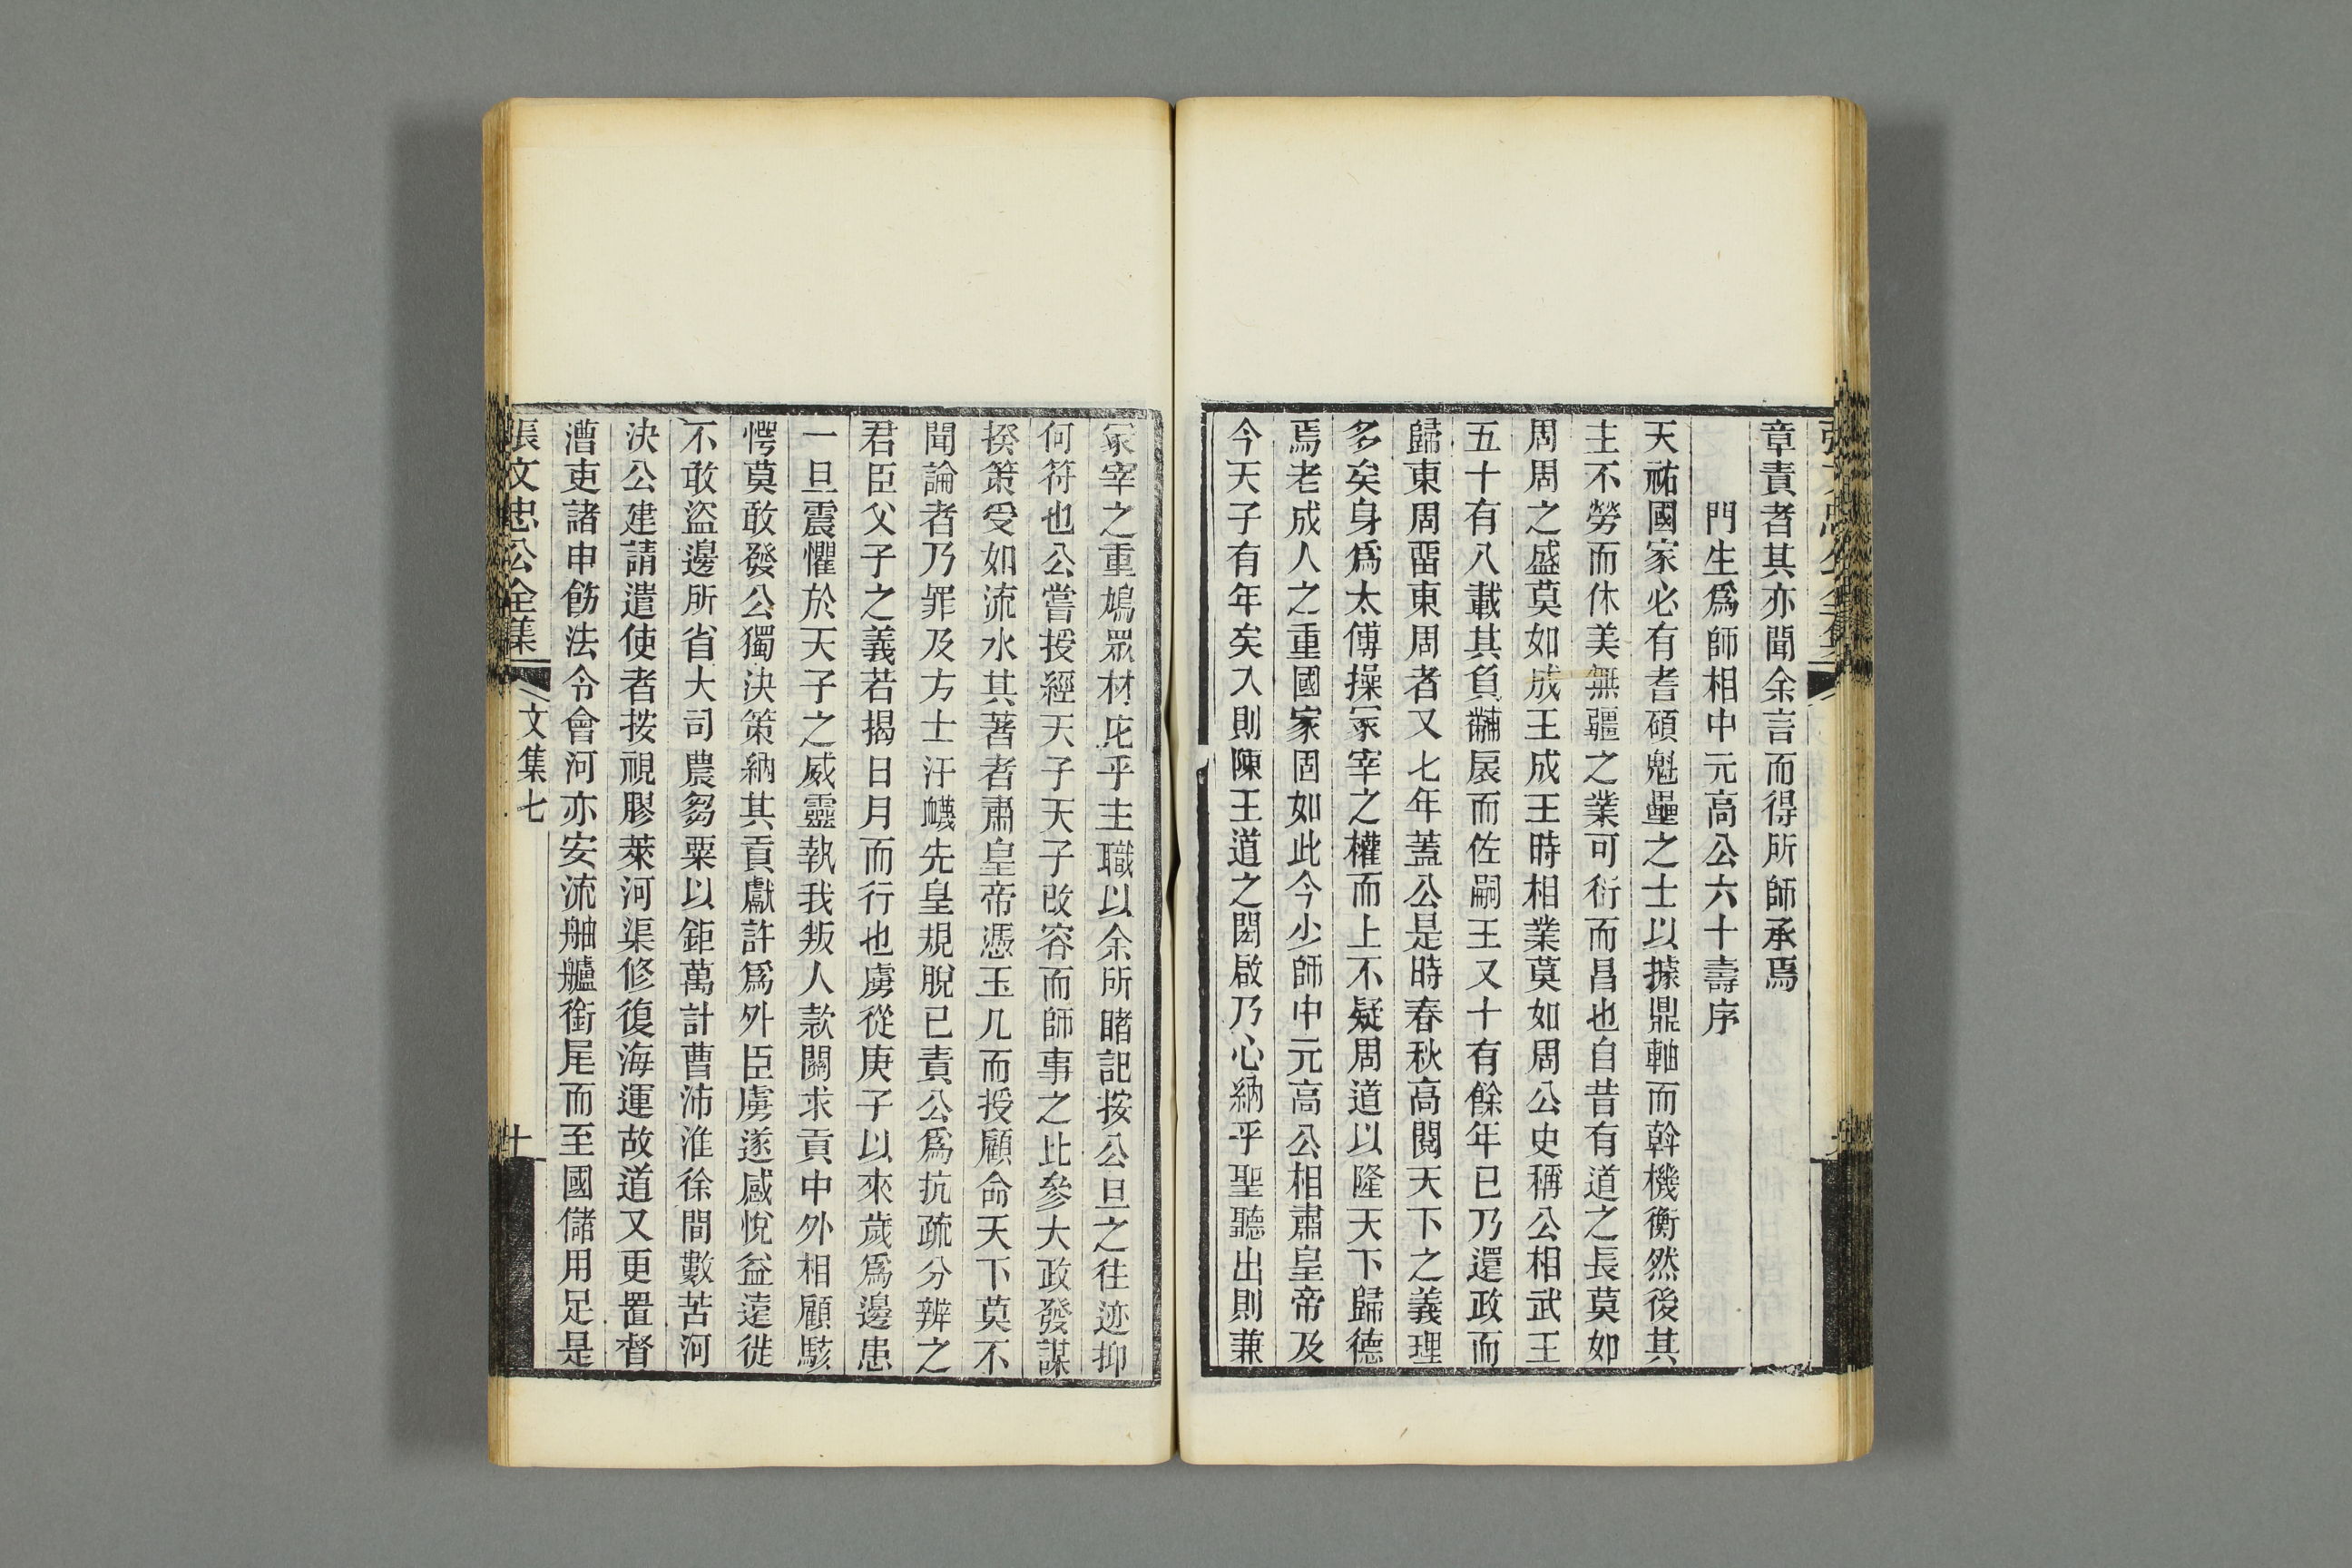 章責者其亦聞余言而得所師承焉
門生為師相中元高公六十壽序
天祐國家必有耆碩魁壘之士以據鼎軸而斡機衡然後其
主不勞而休美無疆之業可衍而昌也自昔有道之長莫如
周周之盛莫如成王成王時相業莫如周公史稱公相武王
五十有八載其負黼扆而佐嗣王又十有餘年已乃還政而
歸東周畱東周者又七年蓋公是時春秋高閱天下之義理
多矣身爲太傅操冡宰之權而上不疑周道以隆天下歸德
焉老成人之重國家固如此今少師中元高公相肅皇帝及
今天子有年矣入則陳王道之閎啟乃心納乎聖聽出則兼
冡宰之重鳩眾材庀乎主職以余所睹記按公旦之往迹抑
何符也公嘗授經天子天子改容而師事之此參大政發謀
揆策受如流水其著者肅皇帝憑玉几而授顧命天下莫不
聞論者乃罪及方士汗衊先皇規脫已責公爲抗疏分辨之
君臣父子之義若揭日月而行也虜從庚子以來歲爲邊患
一旦震懼於天子之威靈執我叛人款關求貢中外相顧駭
愕莫敢發公獨決策納其貢獻許爲外臣虜遂感悅益遠徙
不敢盜邊所省大司農芻粟以鉅萬計曹沛淮徐間數苦河
決公建請遣使者按視膠萊河渠修復海運故道又更置督
漕吏諸申飭法令會河亦安流舳艫銜尾而至國儲用足是
張文忠公全集
文集七
十